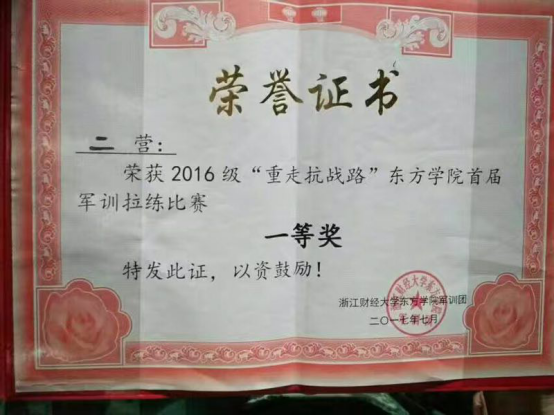 荣誉证书
二 营：
荣获2016级“重走抗战路”东方学院首届
军训拉练比赛
一等奖
特发此证，以资鼓励！
浙江财经大学东方学院军训团
二〇一七年七月